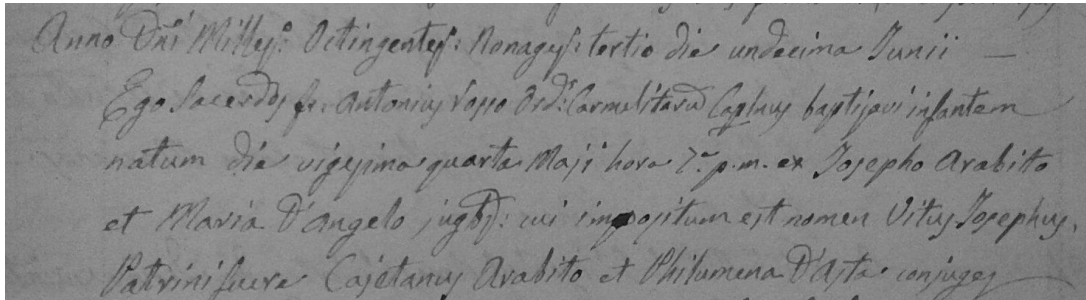 Anno Dñi Milles: Octingentes: Nonages: tertio die undecima Junii —
Ego Sacerdos fr. Antonius Rosso Ord: Carmelitarũ Caplnus baptisavi infantem
natum die vigesima quarta Maji hora 7.a p.m. ex Josepho Arabito
et Maria D'Angelo jugbs: cui impositum est nomen Vitus Josephus.
Patrini fuere Cajetanus Arabito et Philumena D'Asta conjuges